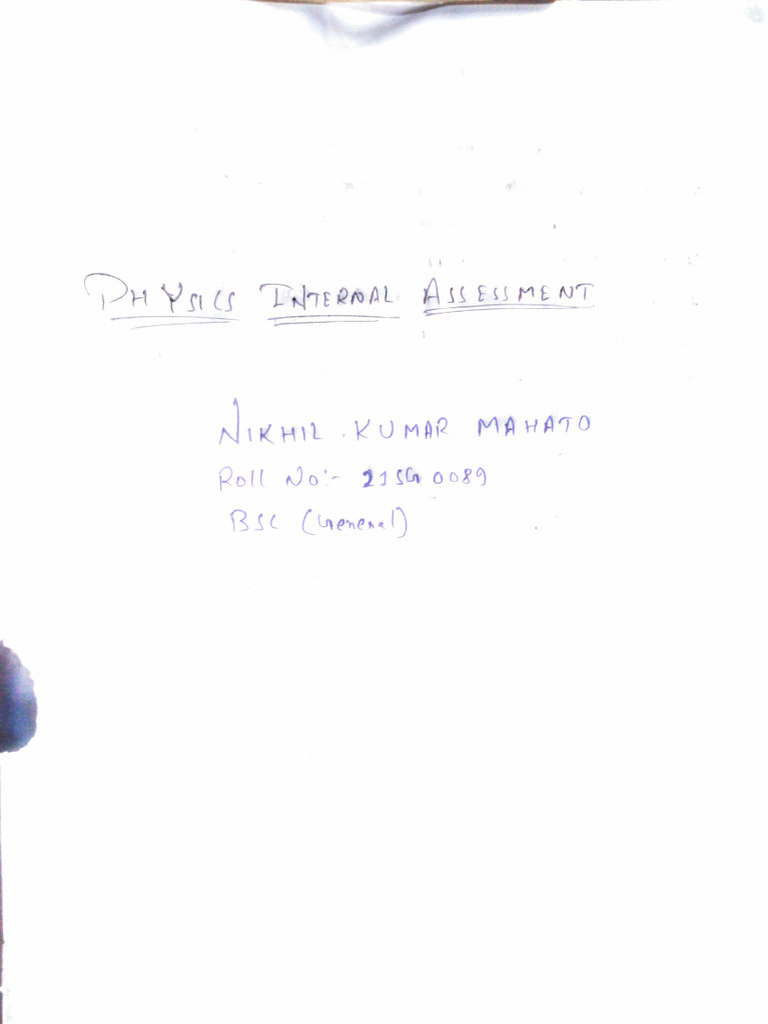 PHYSICS INTERNAL ASSESSMENT
NIKHIL KUMAR MAHATO
Roll No:- 21SG0089
BSC (General)